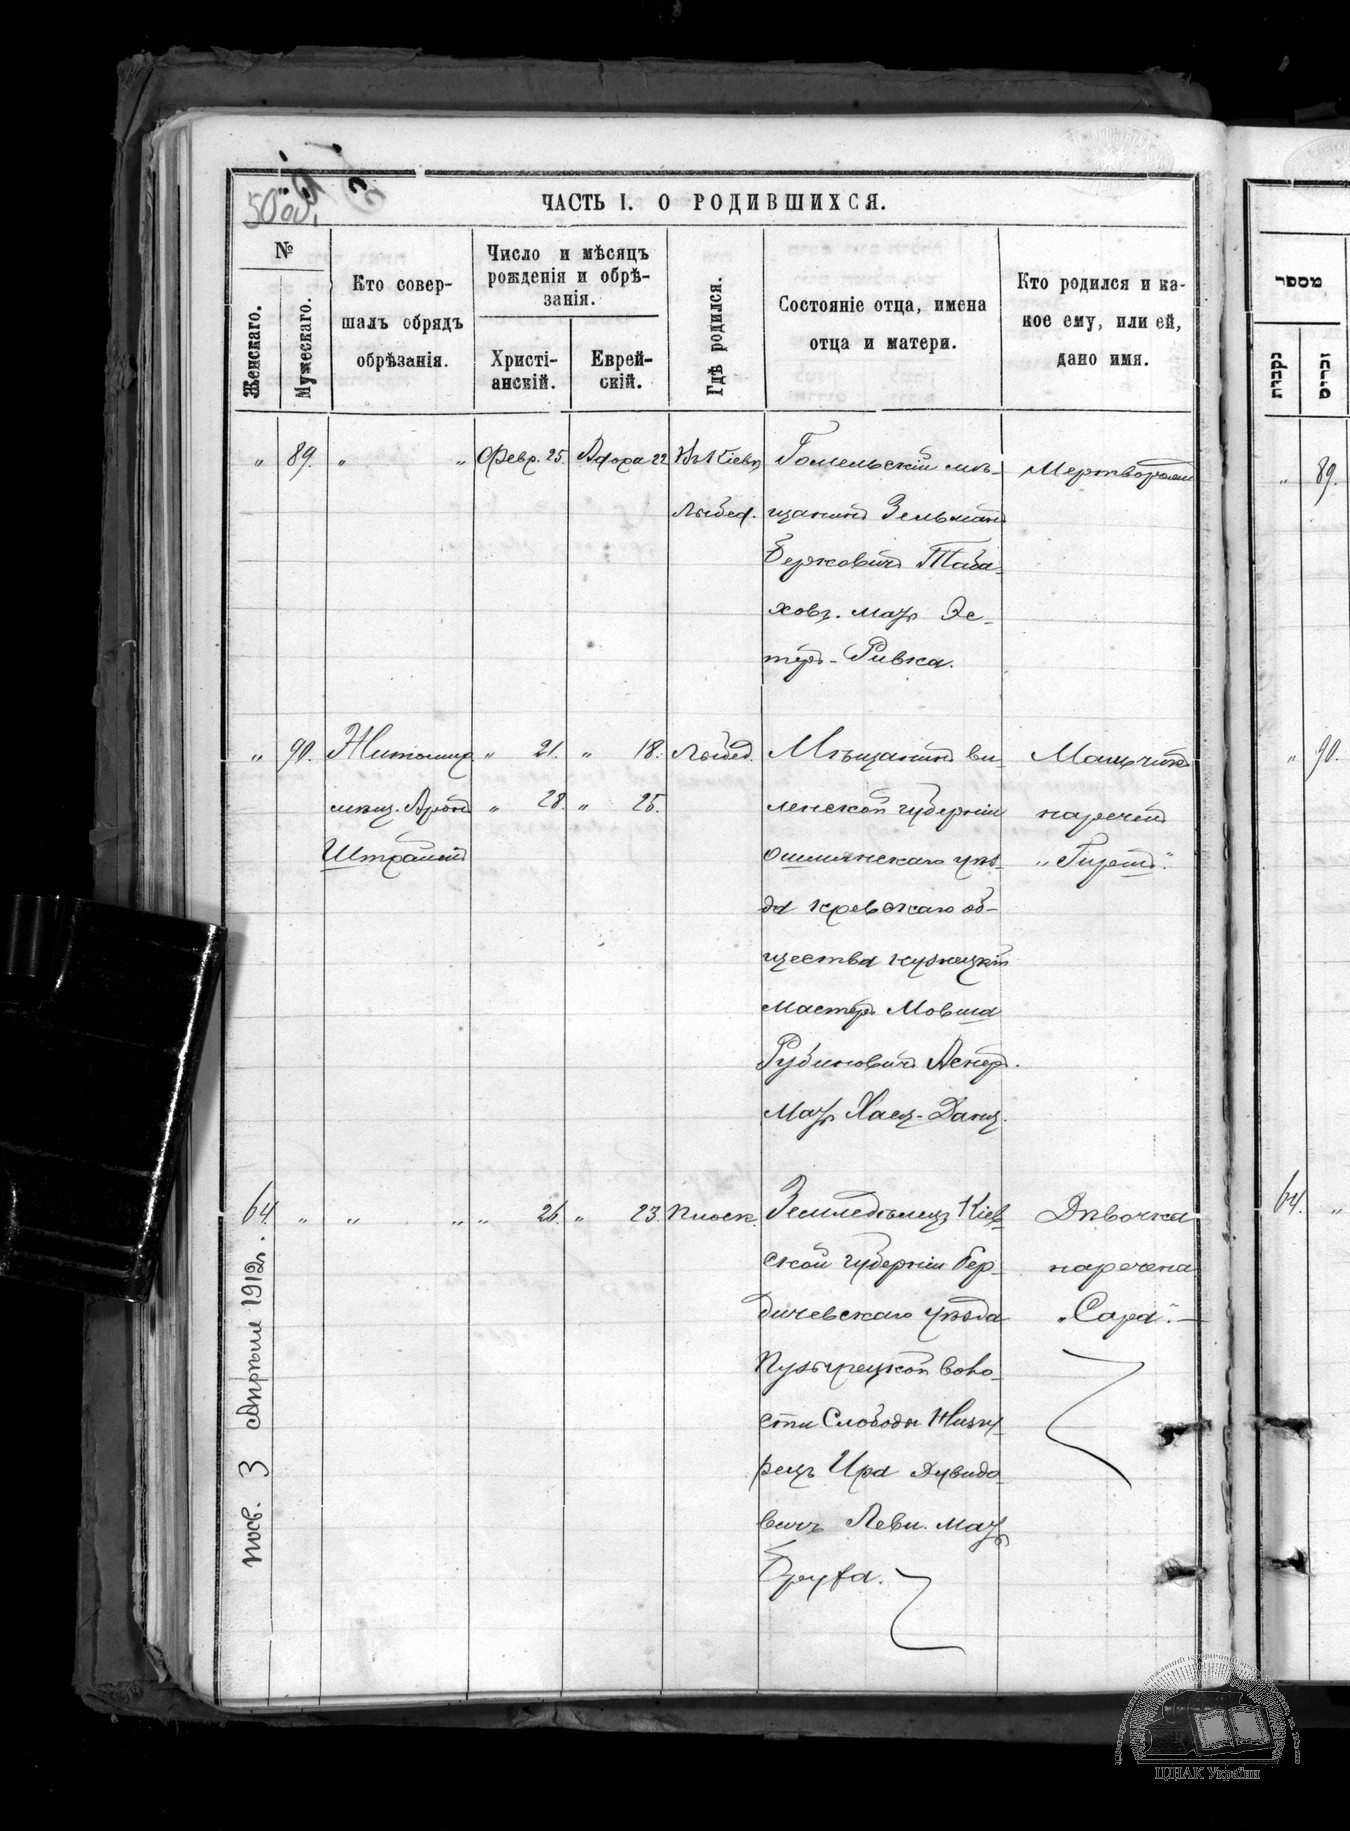 50 об.
ЧАСТЬ I. О РОДИВШИХСЯ.
№
Женскаго.
Мужескаго.
Кто совер-
шалъ обрядъ
обрѣзанія.
Число и мѣсяцъ
рожденія и обрѣ-
занія.
Христі-
анскій.
Еврей-
скій.
Гдѣ родился.
Состояніе отца, имена
отца и матери.
Кто родился и ка-
кое ему, или ей,
дано имя.
„ 89. „ „ Февр. 25. Адара 22 Въ Кіевѣ
Лыбед.
Гомельскій мѣ-
щанинъ Зельманъ
Берковичъ Таба-
ховъ. Мать Эс-
теръ-Ривка.
Мертворожд
„ 90.
Житомир
мѣщ. Аронъ
Штраймъ
„ 21. „ 18. Лыбед.
„ 28. „ 25.
Мѣщанинъ ви-
ленской губерніи
ошмянскаго уѣз-
да кревскаго об-
щества кузнецкій
мастеръ Мовша
Рубиновичъ Аснеръ.
Мать Хася-Даня.
Мальчикъ
нареченъ
„Гиршъ".
64. „ „ „ „ 26. „ 23. Плоск.
Земледѣлецъ Кіев-
ской губерніи Бер-
дичевскаго уѣзда
Пузырецкой воло-
сти Слободы
рецъ Ира Дувидо-
вичъ Леви. Мать
Груня.
Дѣвочка
наречена
„Сара".
посв. 3 Апрѣля 1912г.
מספר
נקבות
זכרים
„ 89.
„ 90.
64. „
ЦДІАК України